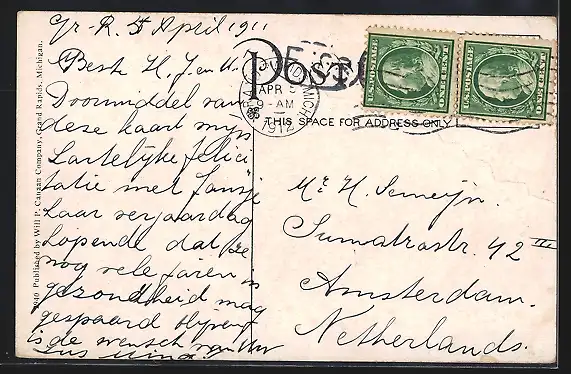 Gr. R. 5 April 1911
Beste H, J en M.
Doormiddel van
deze kaart mijn
hartelijke felici
tatie met Jansje
haar verjaardag
hopende dat ze
nog vele jaren in
gezondheid mag
gespaard blijven
is de wensch van
POST
GRAND RAPIDS, MICH.
APR 5
9-AM
1912
THIS SPACE FOR ADDRESS ONLY
U.S. POSTAGE
ONE CENT
U.S. POSTAGE
ONE CENT
Mr. H. Semeijn.
Sumatrastr. 42 III
Amsterdam.
Netherlands.
Published by Will P. Canaan Company, Grand Rapids, Michigan.